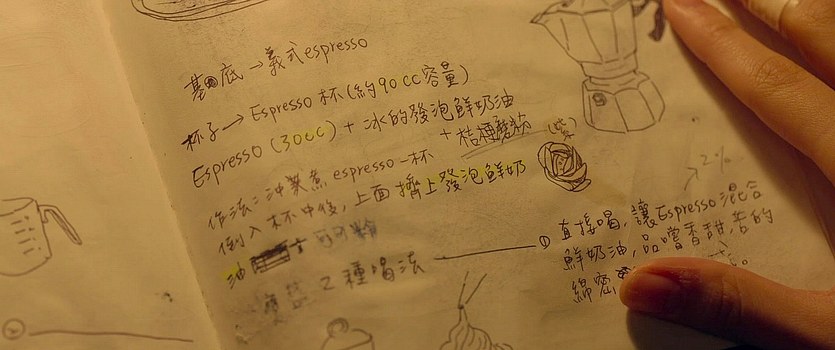 基底→義式espresso
杯子→Espresso杯(約90cc容量)
Espresso(30cc)+冰的發泡鮮奶油
+桔梗蘑菇
(紫)
作法:沖煮 espresso一杯
倒入杯中後,上面擠上發泡鮮奶
油
2種喝法
①直接喝,讓Espresso混合
鮮奶油,品嚐香甜苦的
綿密
2%